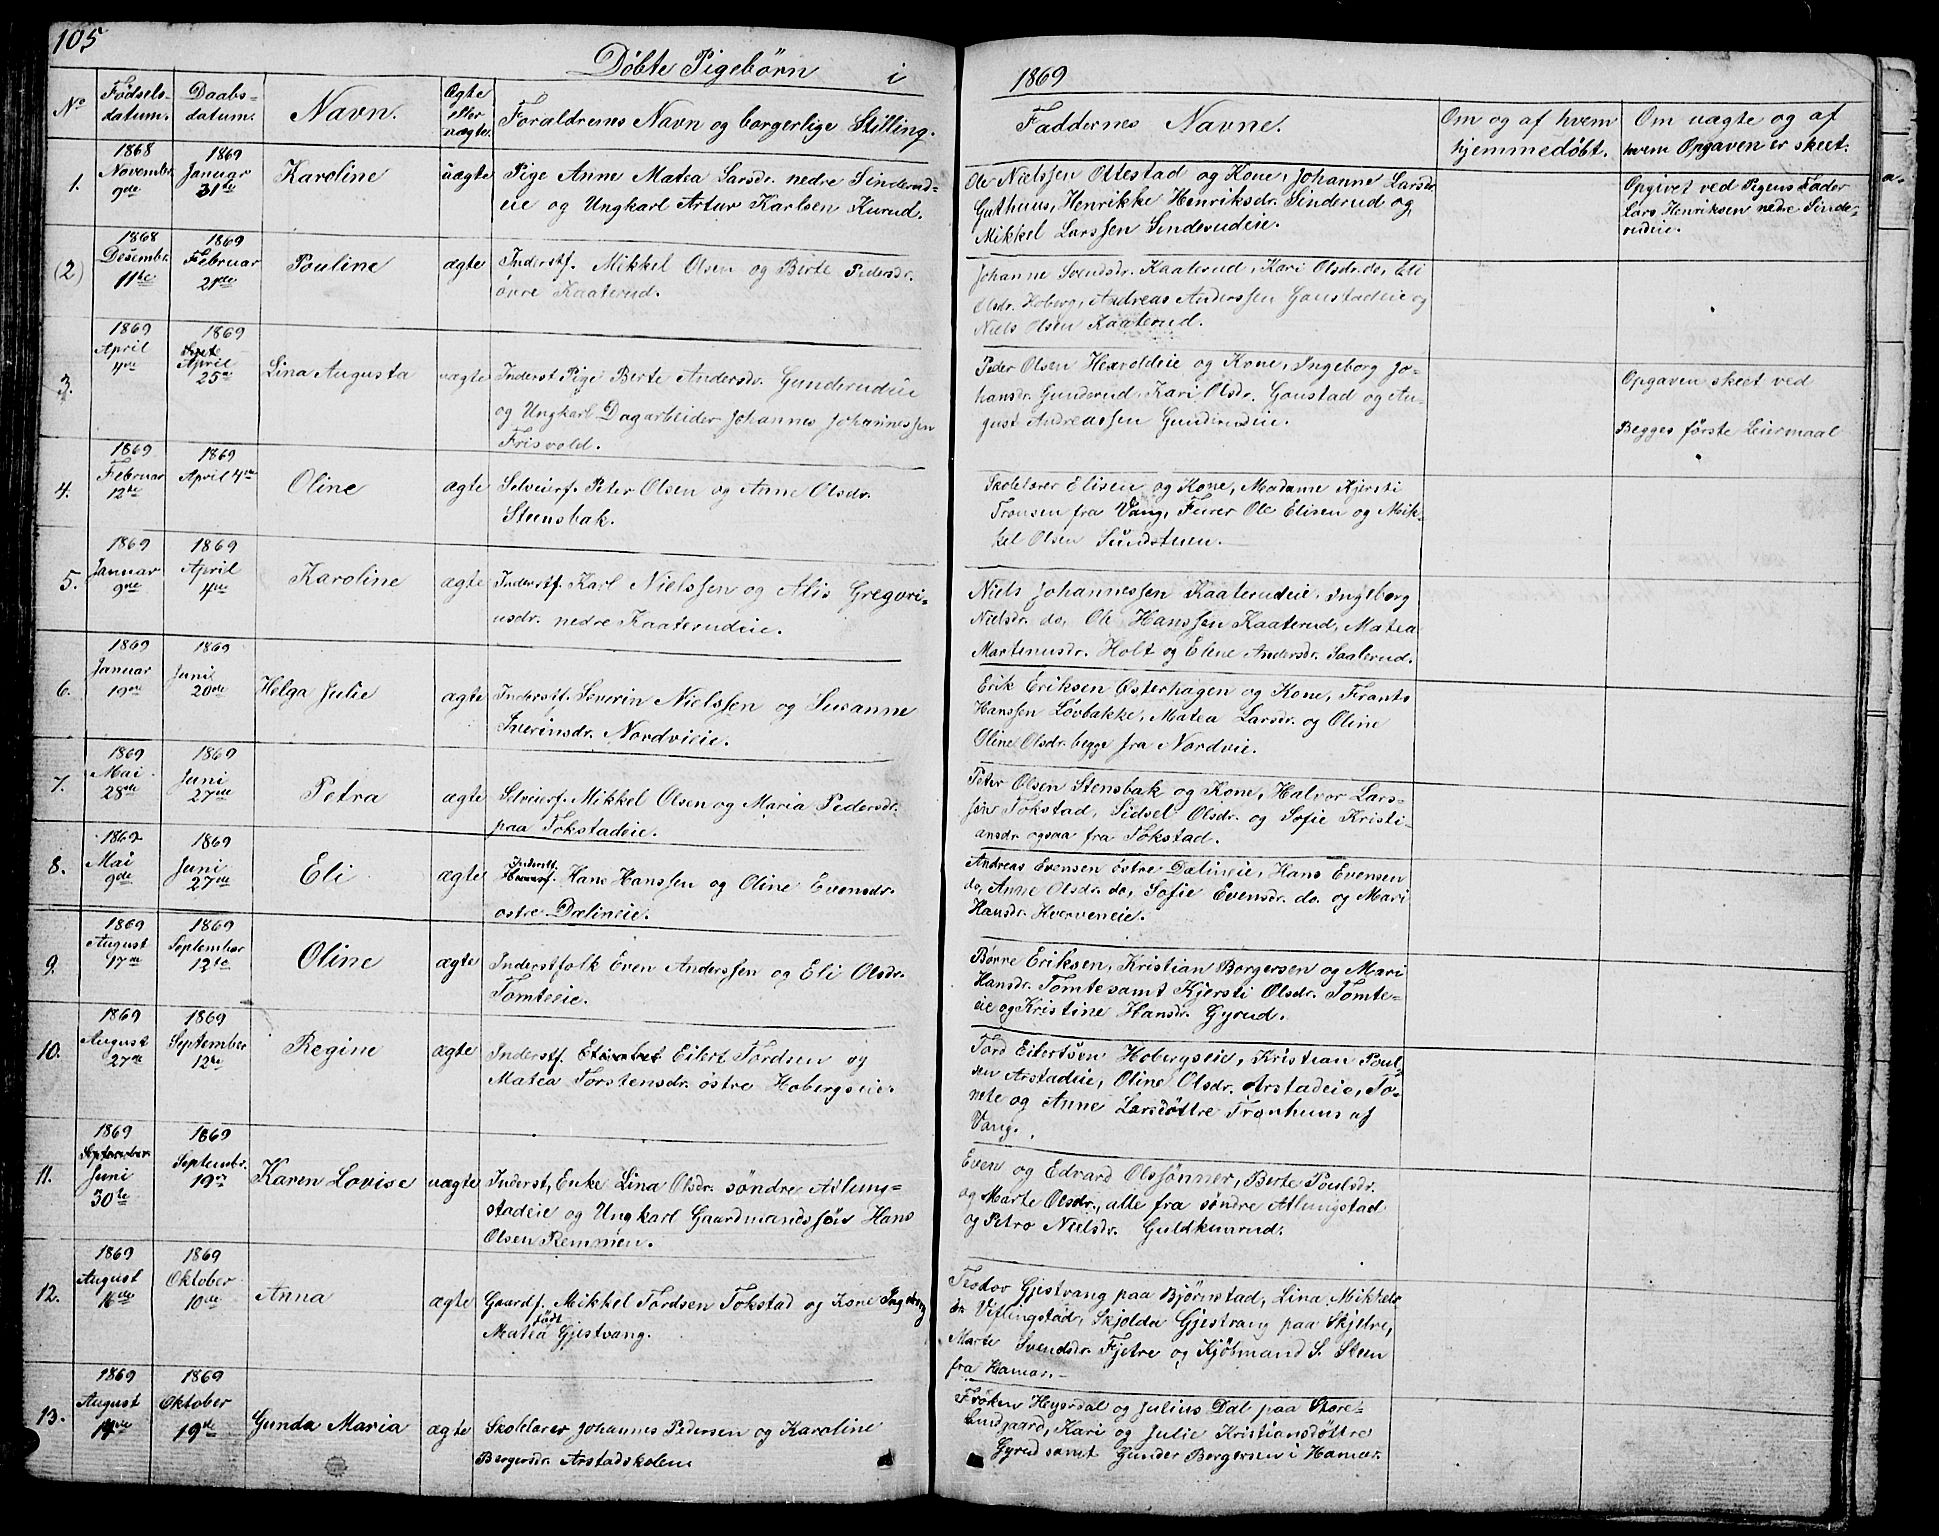 105
Døbte Pigebørn i 1869
No
Fødsels-
datum.
Daabs-
datum.
Navn.
Ægte
eller
uægte.
Foraldrenes Navn og borgerlige Stilling.
Faddernes Navne.
Om og af hvem
hjemmedøbt.
Om uagte og af
hvem Opgaven er skeet.
1.
1868
Novembr.
9de
1869
Januar
31te
Karoline
uægte
Pige Anne Matea Larsdr. nedre Sinderud-
eie og Ungkarl Artur Karlsen Kurud.
Ole Nielssen Ottestad og Kone, Johanne Larsdr.
Guthuus, Henrikke Henriksdr. Sinderud og
Mikkel Larssen Sinderudeie.
Opgivet ved Pigens Fader
Lars Henriksen nedre Sinde-
rudeie.
(2)
1868
Desembr.
11te
1869
Februar
21de
Pouline
ægte
Inderstf. Mikkel Olsen og Berte Pedersdr.
øvre Kaaterud.
Johanne Svendsdr. Kaaterud, Kari Olsdr. do, Eli
Olsdr. Hoberg, Andreas Anderssen Gaustadeie og
Niels Olsen Kaaterud.
3.
1869
April
4de
1869
April
25de
Lina Augusta
uægte
Inderst Pige Berte Andersdr. Gunderudeie
og Ungkarl Dagarbeider Johannes Johannessen
Frisvold.
Peder Olsen Hexroldeie og Kone, Ingeborg Jo-
hansdr. Gunderud, Kari Olsdr. Gaustad og Au-
gust Andreassen Gunderudeie.
Opgaven skeet ved
Begges første Leiermaal
4.
1869
Februar
12te
1869
April 4de
Oline
ægte
Selveierf. Peter Olsen og Anne Olsdr.
Stensbak.
Skolelærer Elisen og Kone, Madame Kjersti
Tronsen fra Vang, Furer Ole Elisen og Mik-
kel Olsen Sundstuen.
5.
1869
Januar
9de
1869
April
4de
Karoline
ægte
Inderstf. Karl Nielssen og Alis Gregori-
usdr. nedre Kaaterudeie.
Niels Johannessen Kaaterudeie, Ingeborg
Nielsdr. do, Ole Hanssen Kaaterud, Matea
Martinusdr. Holt og Elene Andersdr. Saaterud.
6.
1869
Januar
19de
1869
Juni
20de
Helga Julie
ægte
Inderstf. Severin Nielssen og Susanne
Sverinsdr. Nordvieie.
Erik Eriksen Østerhagen og Kone, Frants
Hanssen Løvbakke, Matea Larsdr. og Oline
Oline Olsdr. begge fra Nordvie.
7.
1869
Mai
28de
1869
Juni
27de
Petra
ægte
Selveierf. Mikkel Olsen og Maria Pedersdr.
paa Tokstadeie.
Peter Olsen Stensbak og Kone, Halvor Lars-
sen Tokstad, Sidsel Olsdr. og Sofie Kristi-
ansdr. ogsaa fra Tokstad.
8.
1869
Mai
9de
1869
Juni
27de
Eli
ægte
Inderstf.
Hans Hanssen og Oline Evensdr.
østre Dælineie.
Andreas Evensen østre Dælineie, Hans Evensen
do, Anne Olsdr. do, Sofie Evensdr. do. og Mari
Hansdr. Kverveneie.
9.
1869
August
17de
1869
September
12te
Oline
ægte
Inderstfolk Even Anderssen og Eli Olsdr.
Tomteeie.
Børre Eriksen, Kristian Borgersen og Mari
Hansdr. Tomte samt Kjersti Olsdr. Tomte-
eie og Kristine Hansdr. Gyrud.
10.
1869
August
27de
1869
September
12te
Regine
ægte
Inderstf. Eilert Tordsen og
Matea Torstensdr. østre Hobergseie.
Tord Eilertsen Hobergseie, Kristian Poul-
sen Arstadeie, Oline Olsdr. Arstadeie, To-
nete og Anne Larsdøttre Tronhuus af
Vang.
11.
1869
September
Juni
30te
1869
Septembr.
19de
Karen Lovise
uægte
Inderst, Enke Lina Olsdr. søndre Atlung-
stadeie og Ungkarl Gaardmandssøn Hans
Olsen Remmen.
Even og Edvard Olssønner, Berte Poulsdr.
og Marte Olsdr., alle fra søndre Atlungstad
og Petro Nielsdr. Guldknarud.
12.
1869
August
16de
1869
Oktober
10de
Anna
ægte
Gaardf. Mikkel Tordsen Tokstad og Kone Ingeborg
Matea født Gjestvang.
Teodor Gjestvang paa Bjørnstad, Lina Mikkels-
dr. Viflingstad, Skjolda Gjestvang paa Skjetre,
Marte Svendsdr. Fjetre og Kjøbmand S. Steen
fra Hamar.
13.
1869
August
14de
1869
Oktober
19de
Gunda Maria
ægte
Skolelærer Johannes Pedersen og Karoline
Bergersdr. Arstadskolen
Frøken Heyerdal og Julius Dal paa Store-
Lundgaard, Kari og Julie Kristiansdøttre
Gyrud samt Gunder Bergersen i Hamar.